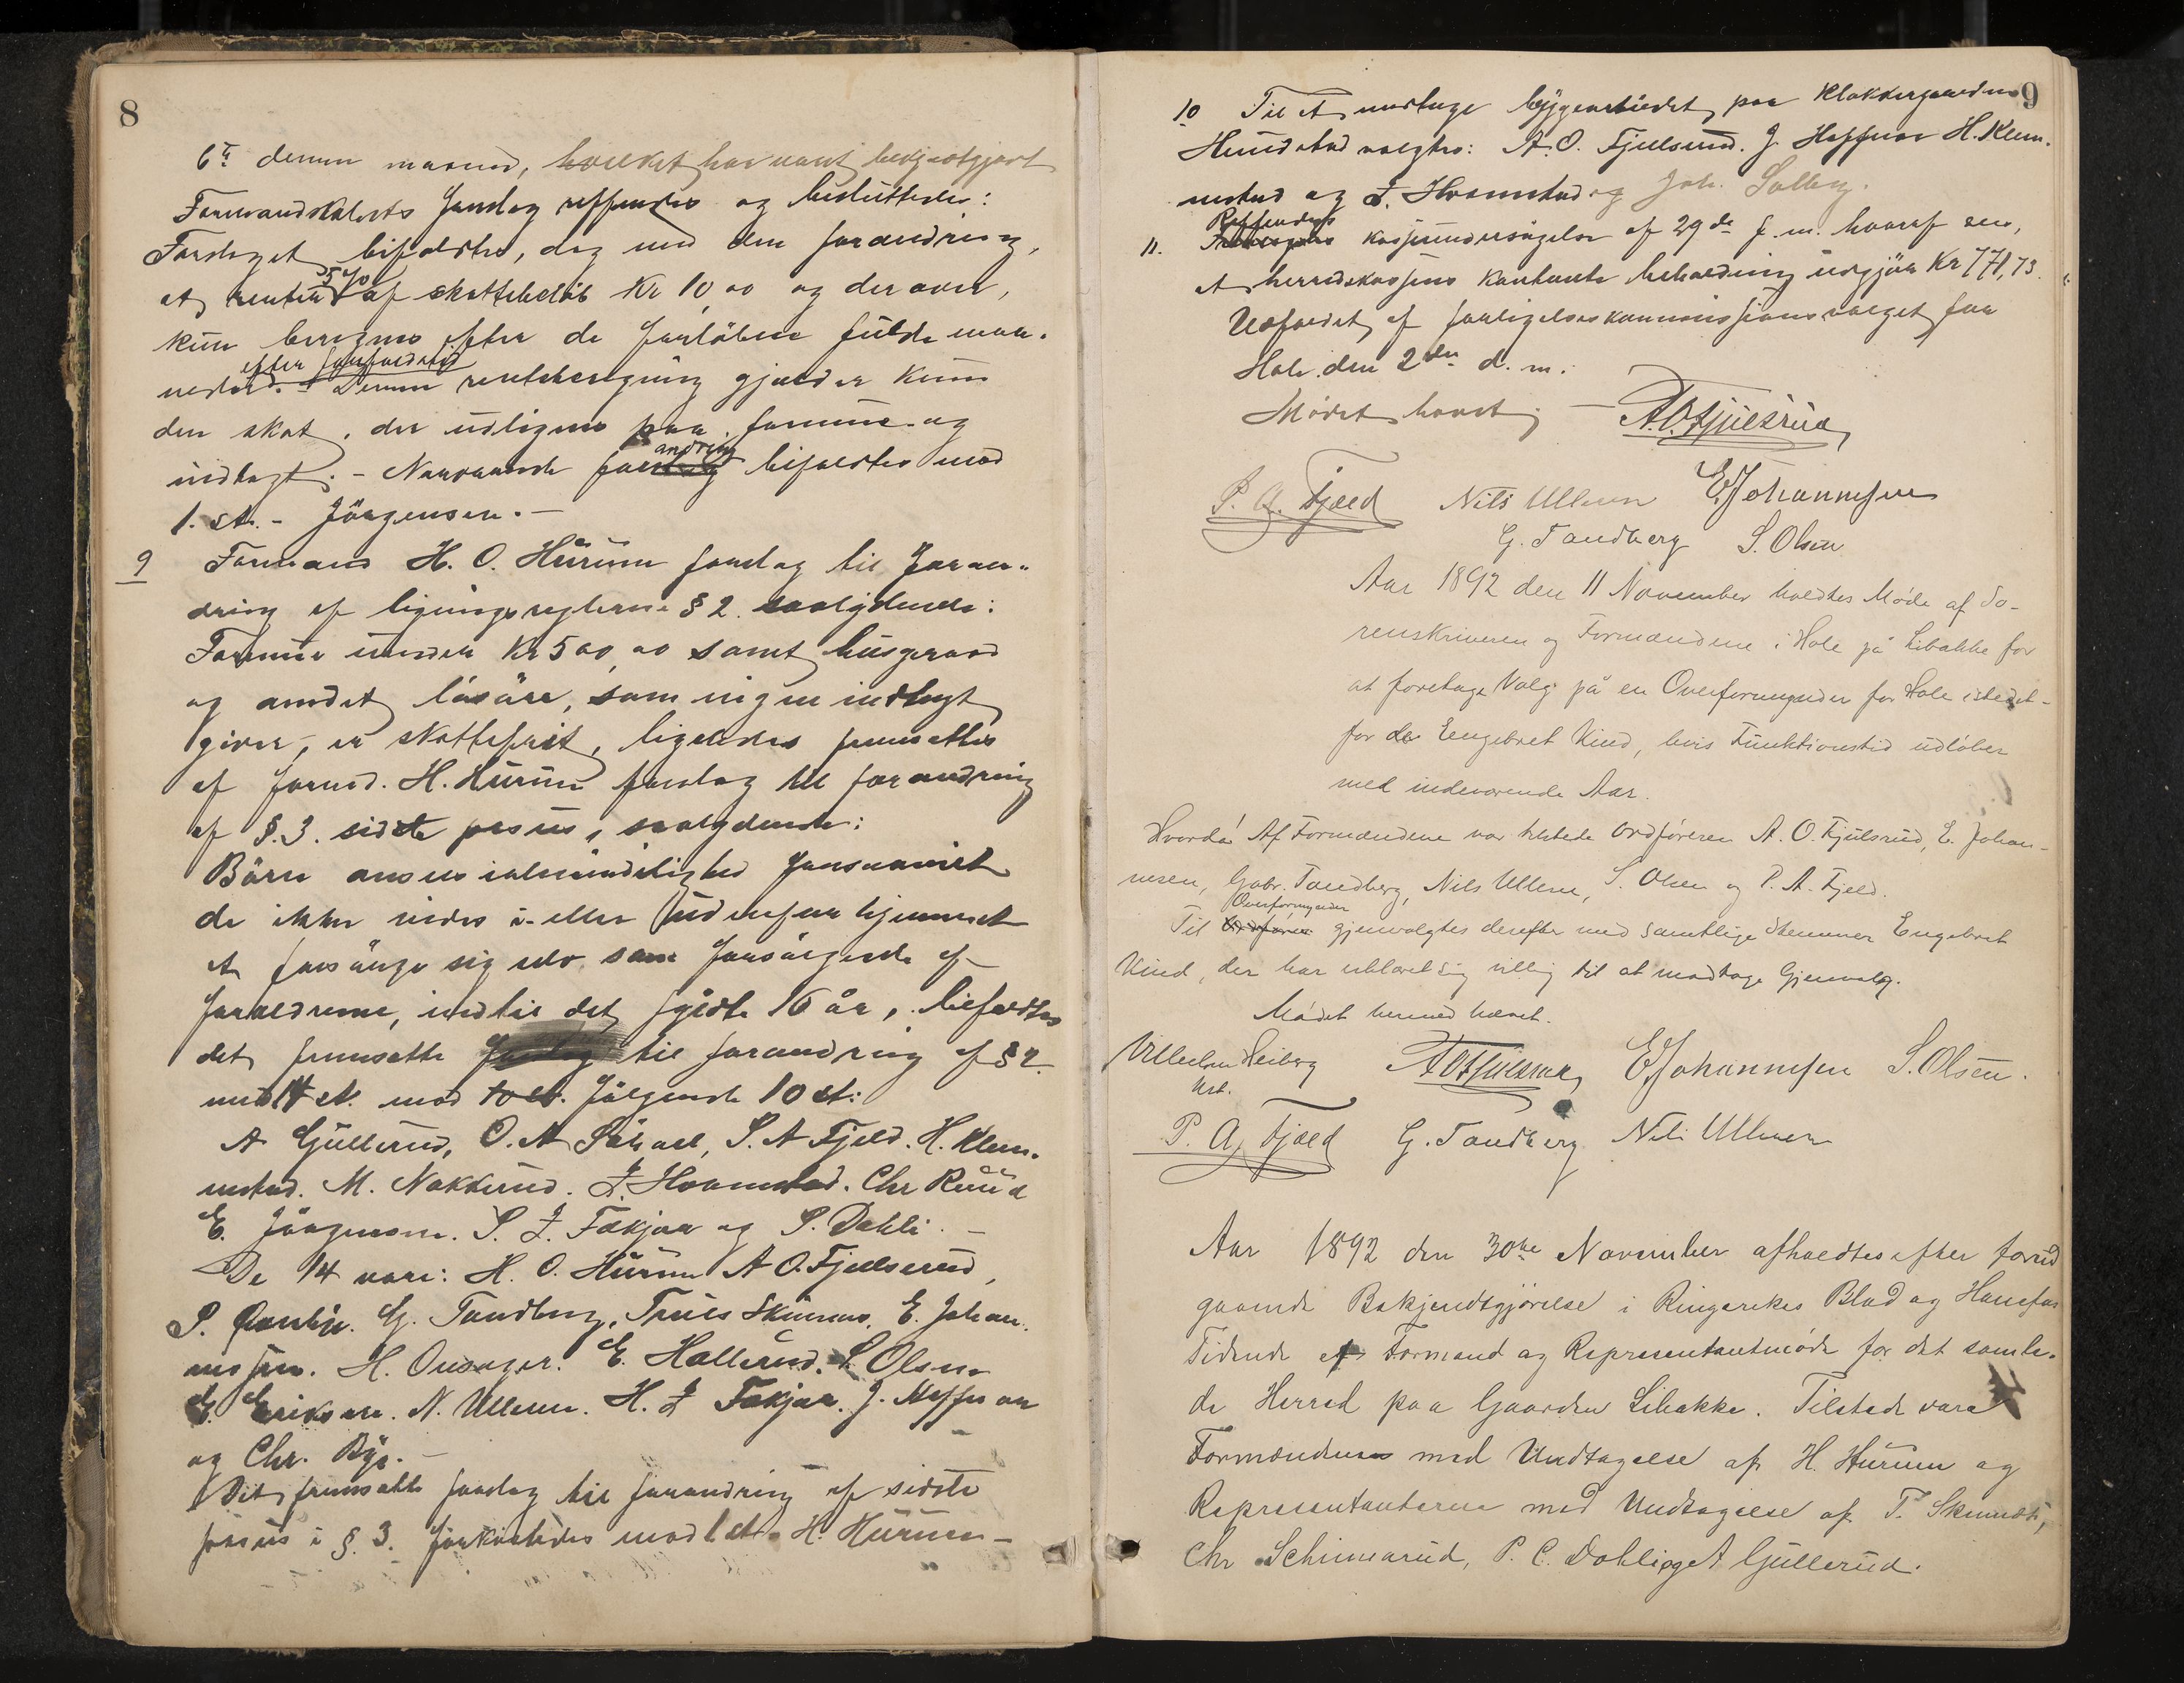 8
6te denne maaned, hvilket har vært bekjendtgjort
Formandskabets forslag reffereredes og besluttedes:
Forslaget bifaldtes, dog med den forandring,
at renten 5 % af skattebeløb Kr 10,00 og derover,
kun beregnes efter de forløbne fulde maa-
neder. efter forfaldstid - Denne renteberegning gjælder kun
den skat, der udlignes paa formue og
indtægt. - Nærværende forandring bifaldtes mod
1. st. - Jörgensen. -
9 Formand H. O. Hürum forslag til foran-
dring af ligningsreglerne § 2. saalydende:
Formue under Kr 500,00 samt husgeraad
og andet løsøre, som ingen indtægt
giver, er skattefrit, ligeledes fremsattes
af formd. H. Hürum forslag til forandring
af §. 3. sidste passus, saalydende:
Börn ansees i almindelighed forsørget
de ikke vides i eller udenfor hjemmet
at forsörge sig selv som forsörgede af
forældrene, indtil det fyldte 16 år, bifaldtes
det fremsatte forslag til forandring af § 2
med 14 st. mod 10 st. fölgende 10 st:
A Güllerud, O. A Sörsdal, P. A Fjeld. H. Klem-
metsud. M. Nakkerud. L. Hvamstad. Chr Rüüd
E. Jörgensen. S. L. Fækjær og P. Dahli. -
De 14 vare: H. O. Hürum A O. Fjeldsrud,
P. Gomlije. G. Tandberg, Truls Skimmes. E. Johan-
nessen. H. Onsager. E. Hallerud. S. Olsen
E. Eriksen. N. Ullern. H. L Fækjar. J. Moffson
og Chr. Bye. -
Det fremsatte forslag til forandring af sidste
passus i §. 3. forkastedes mod 1 st. H. Hürum -
9
10 Til at modtage byggearbeidet paa Klokkergaarden
Hundstad valgtes: A. O. Fjeldsrud. J. Moffson H. Klem-
metsud og L. Hvamstad og Joh. Solberg.
11. Refferedes kasseundersøgelse af 29de f. m. hvoraf sees,
at herredskassens kontante beholdning udgjör Kr 771,73.
Udfaldet af forligelseskommissionsvalget for
Hole den 2den d. m.
Mödet hævet. - A. O. Fjeldsrud
P. A. Fjeld Nils Ullern E. Johannesen
G. Tandberg S. Olsen
Aar 1892 den 11 November holdtes Møde af So-
renskriveren og Formændene i Hole på Libakke for
at foretage Valg på en Overformynder for Hole istedet-
for de Engebret Viud, hvis Funktionstid udløber
med indeværende Aar.
Hvorda Af Formændene var tilstede Ordføreren A. O. Fjeldsrud, E. Johan-
nesen, Gabr. Tandberg, Nils Ullern, S. Olsen og P. A. Fjeld.
Til Ordfører Overformynder gjenvalgtes derefter med samtlige Stemmer Engebret
Viud, der har erklæret sig villig til at modtage Gjenvalg.
Mødet hermed hævet.
Vilhelm Heiberg A O Fjeldsrud E. Johannesen S. Olsen.
Kst.
P. A. Fjeld G. Tandberg Nils Ullern
Aar 1892 den 30te November afholdtes efter forud
gaaende Bekjendtgjörelse i Ringerikes Blad og Hønefos
Tidende et Formand og Repræsentantmöde for det samle-
de Herred paa Gaarden Libakke. Tilstede vare
Formændene med Undtagelse af H. Hürum og
Repræsentanterne med Undtagelse af T. Skimmes,
Chr Schimerud, P. C. Dahli og A Güllerud.